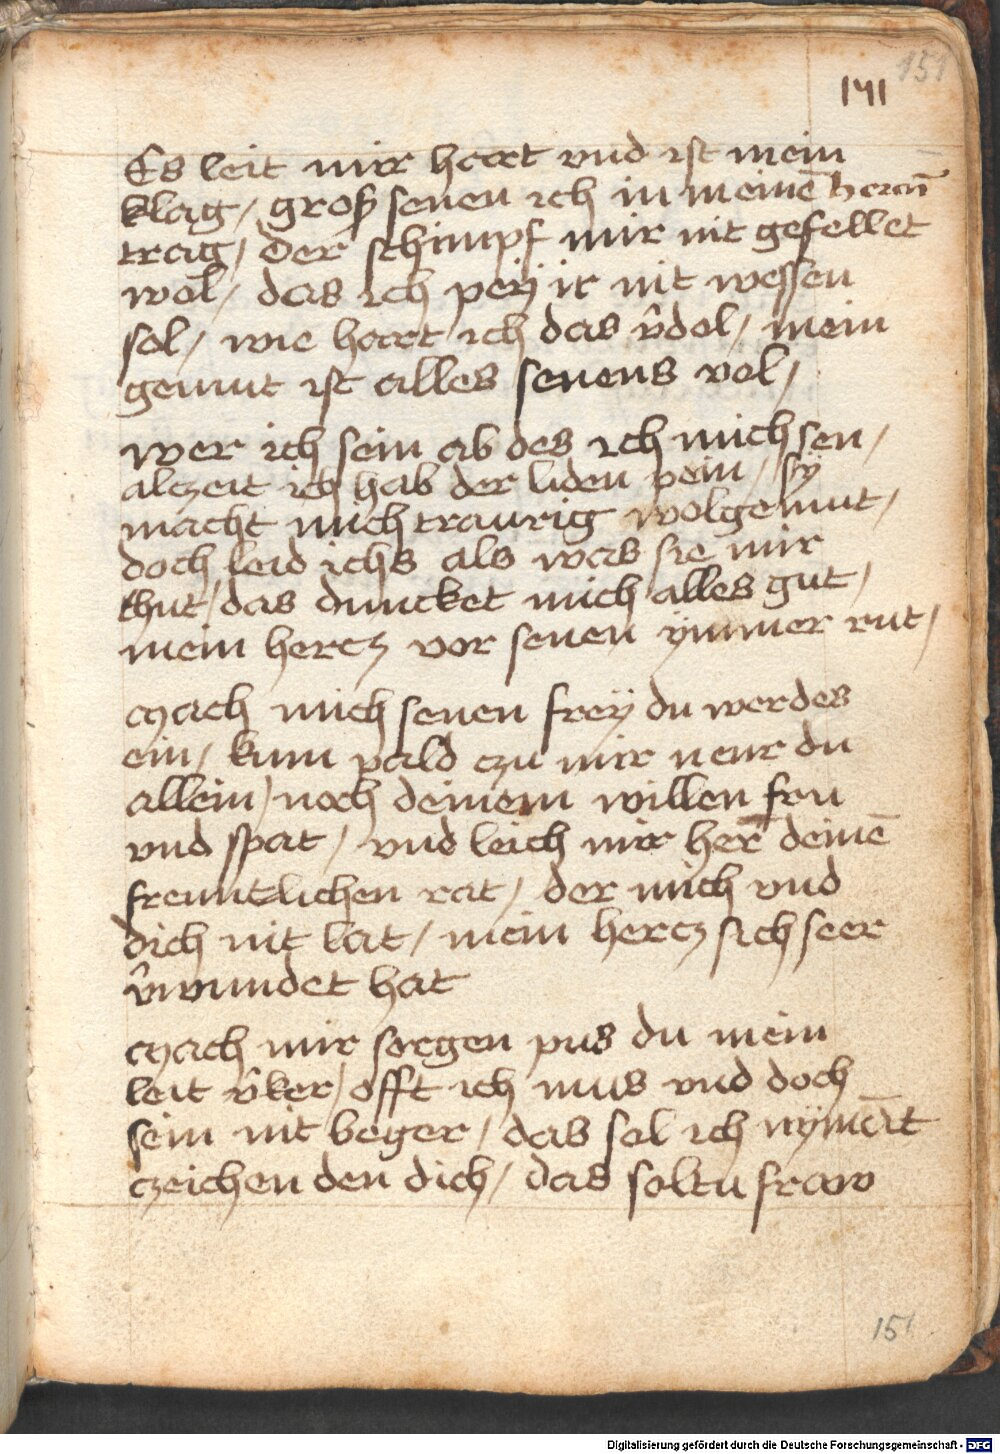 151
141
Es leit mir hart vnd ist mein
klag / groß senen ich in meinē herczñ
trag / der schimpf mir nit gefellet
wol / das ich peÿ ir nit wessen
sol / wie hart ich das v̂dol / mein
gemut ist alles senens vol /
wer ich sein ab des ich mich sen /
alczeit ich hab der liden pein / sÿ
macht mich traurig wolgemut /
doch leid ichs als was sie mir
thut / das duncket mich alles gut /
mein hercz vor senen ÿmmer rut /
Mach mich senen freÿ du werdes
ein / kum pald czu mir neur du
allein / noch deinem willen fru
vnd spat / vnd leich mir her deinē
freuntlichen rat / der mich vnd
dich nit lat / mein hercz sich seer
v̂wundet hat
Mach mir sorgen pus du mein
leit v̂ker / offt ich mus vnd doch
sein nit beger / das sol ich nÿmāt
czeichen den dich / das soltu fraw
151
Digitalisierung gefördert durch die Deutsche Forschungsgemeinschaft - DFG